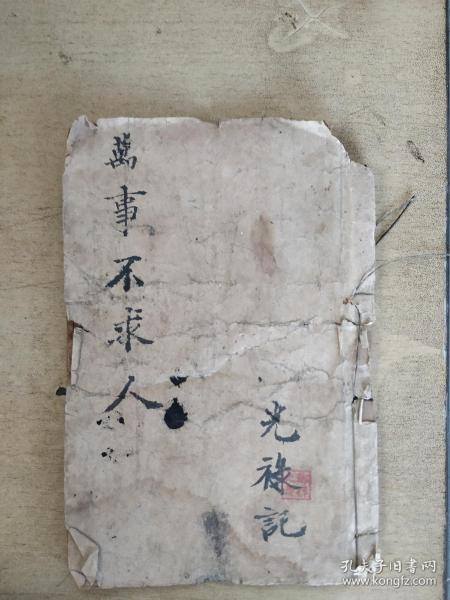 萬事不求人
光祿記
孔夫子旧书网
www.kongfz.com